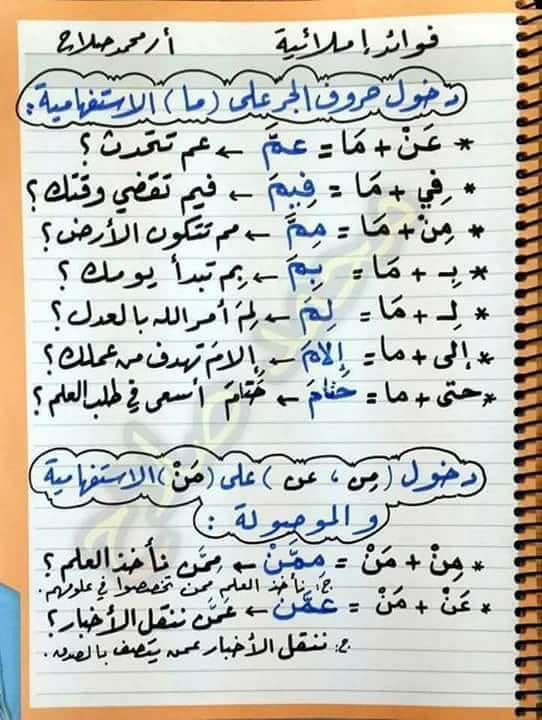 فوائد إملائية أ/ محمد صلاح
دخول حروف الجر على (ما) الاستفهامية :
* عَنْ + مَا = عمَّ ← عم تتحدث ؟
* فِي + مَا = فِيمَ ← فيم تقضي وقتك ؟
* مِنْ + مَا = مِمَّ ← مم تتكون الأرض ؟
* بِـ + مَا = بِمَ ← بِم تبدأ يومك ؟
* لِـ + مَا = لِمَ ← لِمَ أمر الله بالعدل ؟
* إلى + ما = إِلامَ ← إِلامَ تهدف من عملك ؟
* حتى + ما = حَتَّامَ ← حَتَّامَ أسعى في طلب العلم ؟
دخول (مِن ، عن) على (مَنْ) الاستفهامية
والموصولة :
* مِنْ + مَنْ = ممَّنْ ← مِمَّن نأخذ العلم ؟
ج: نأخذ العلم ممن تخصصوا في علومهم .
* عَنْ + مَنْ = عمَّن ← عَمَّن ننقل الأخبار ؟
ج: ننقل الأخبار عمن يتصف بالصدق .
محمد صلاح